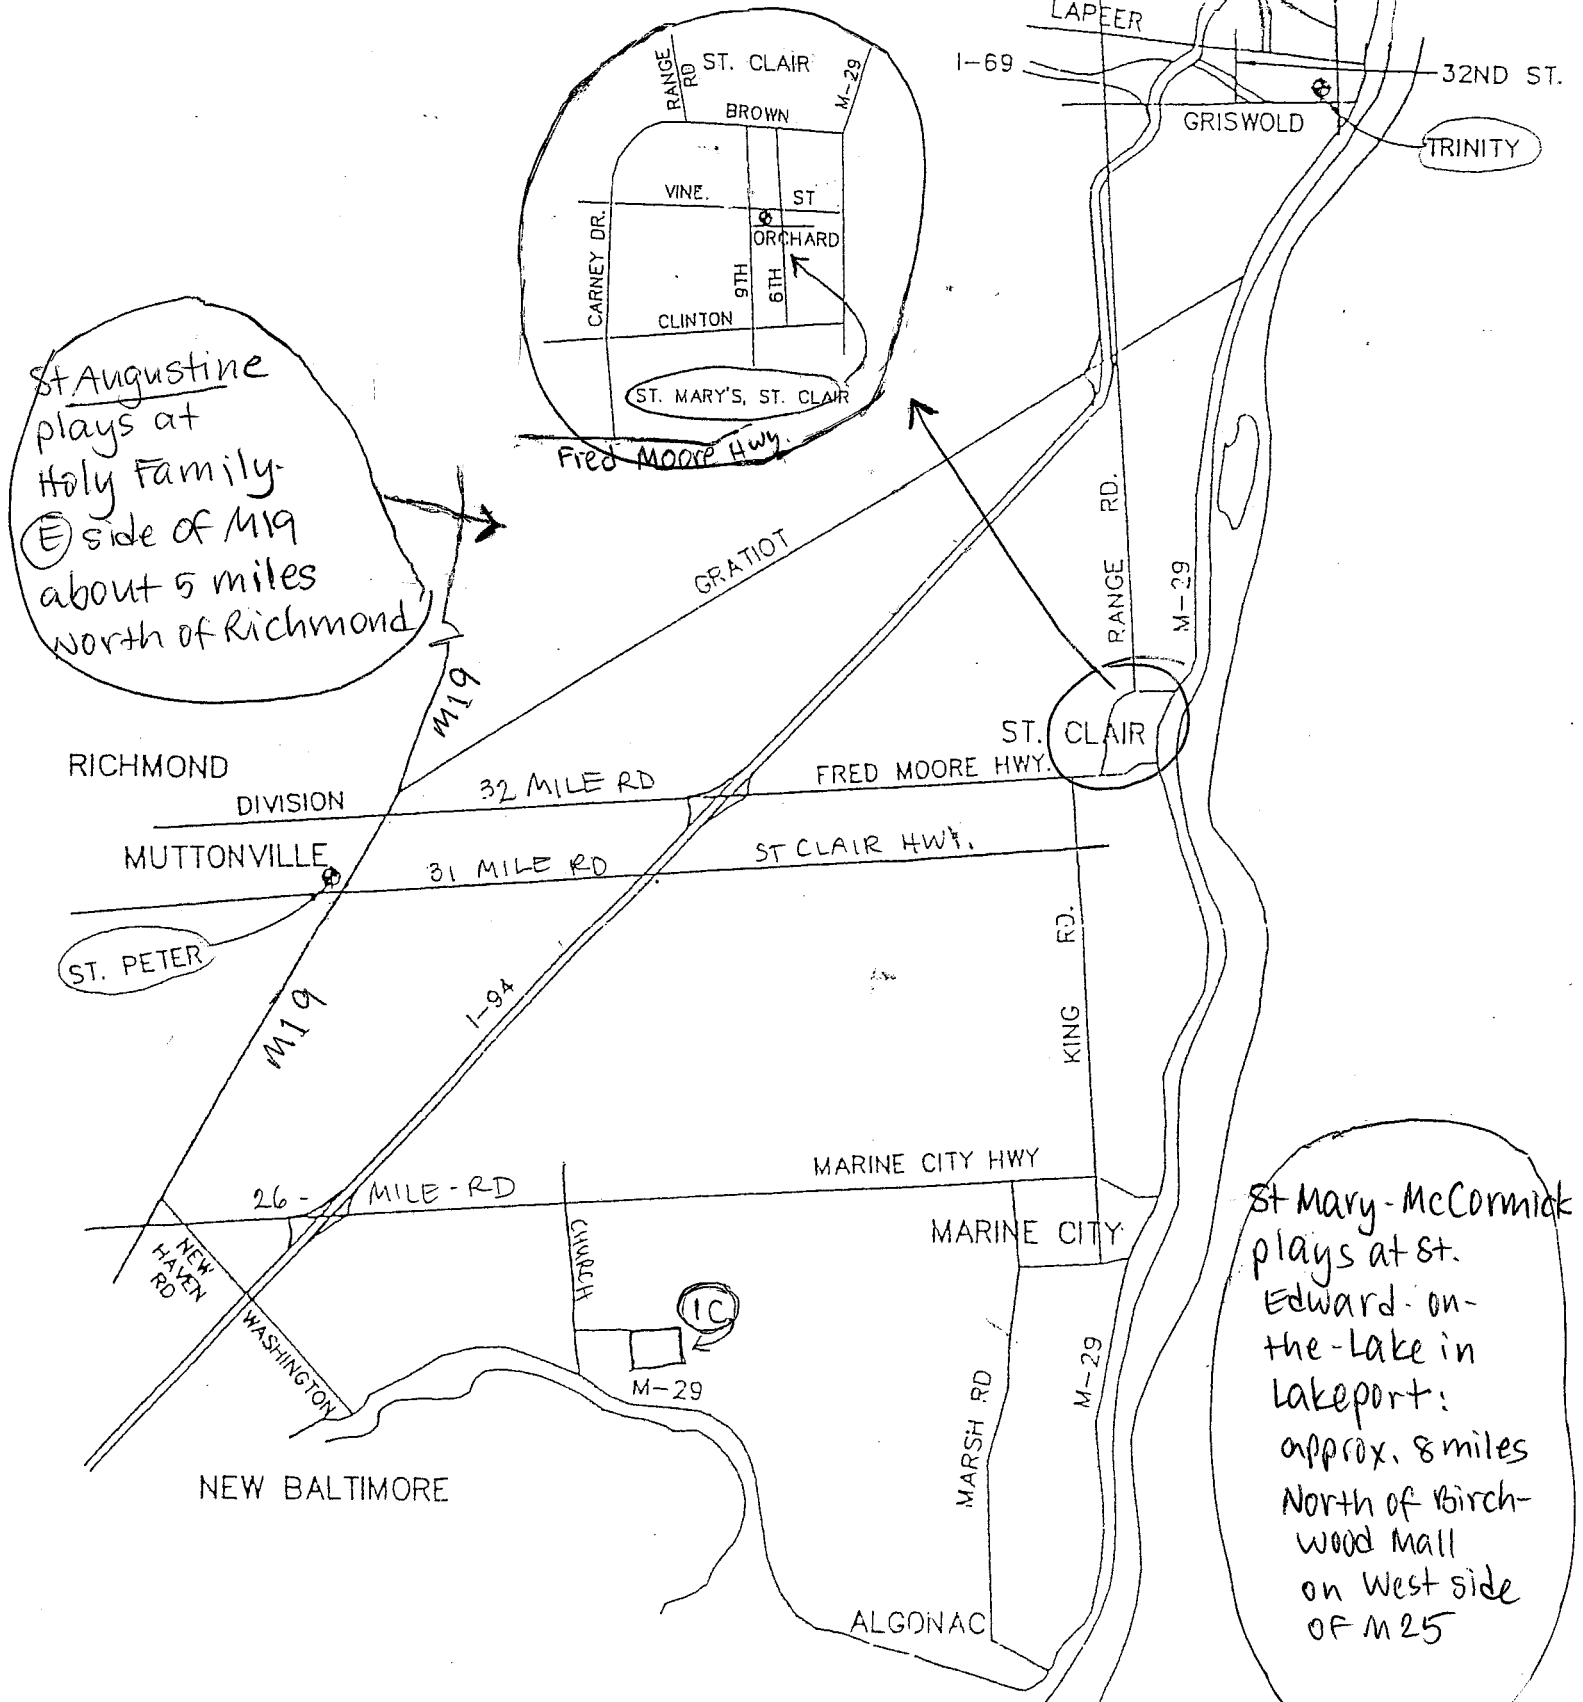 LAPEER
I-69
32ND ST.
GRISWOLD
TRINITY
RANGE RD
ST. CLAIR
M-29
BROWN
VINE. ST
ORCHARD
CARNEY DR.
9TH
6TH
CLINTON
ST. MARY'S, ST. CLAIR
Fred Moore Hwy.
St Augustine
plays at
Holy Family-
(E) side of M19
about 5 miles
North of Richmond
GRATIOT
RANGE RD.
M-29
M19
ST. CLAIR
RICHMOND
DIVISION
32 MILE RD
FRED MOORE HWY.
MUTTONVILLE
31 MILE RD
ST CLAIR HWY.
ST. PETER
KING RD.
M19
I-94
MARINE CITY HWY
26- MILE-RD
MARINE CITY
NEW
HAVEN
RD
CHURCH
IC
WASHINGTON
M-29
MARSH RD
M-29
NEW BALTIMORE
ALGONAC
St Mary-McCormick
plays at St.
Edward-on-
the-Lake in
Lakeport:
approx. 8 miles
North of Birch-
wood Mall
on West side
of M25